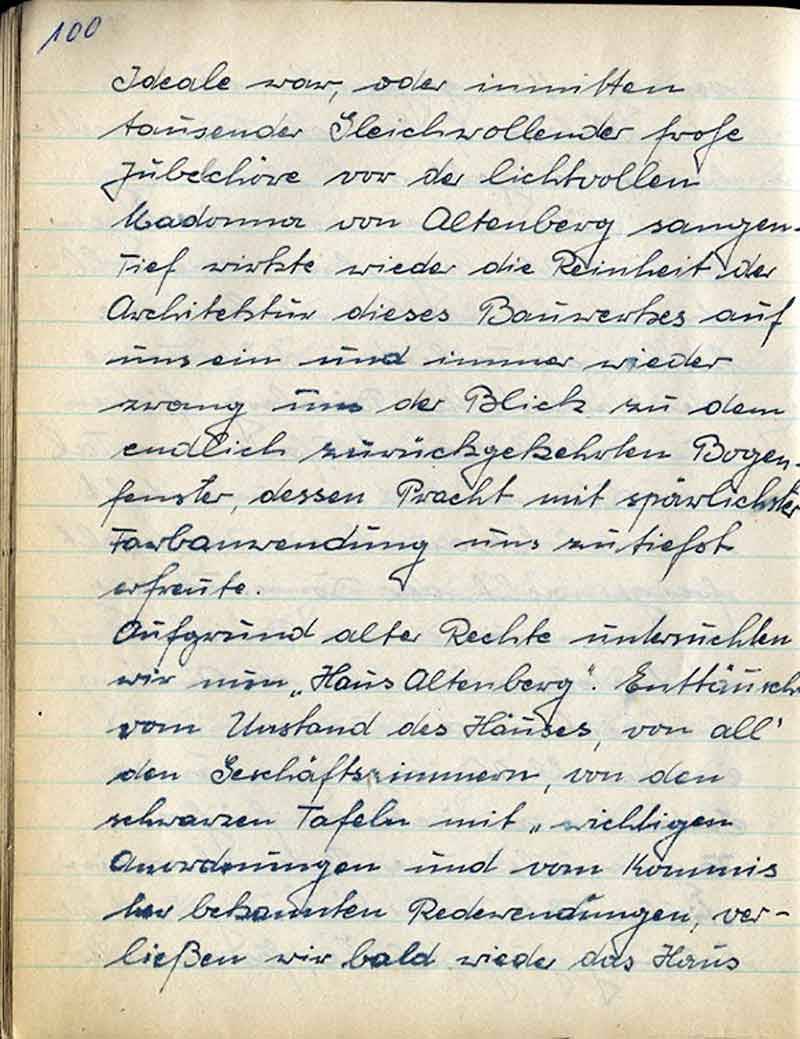 100
Ideale war, oder inmitten
tausender Gleichwollender frohe
Jubelchöre vor der lichtvollen
Madonna von Altenberg sangen.
Tief wirkte wieder die Reinheit der
Architektur dieses Bauwerkes auf
uns ein und immer wieder
zwang uns der Blick zu dem
endlich zurückgekehrten Bogen-
fenster, dessen Pracht mit spärlichster
Farbanwendung uns zutiefst
erfreute.
Aufgrund alter Rechte untersuchten
wir nun „Haus Altenberg“. Enttäuscht
vom Zustand des Hauses, von all'
den Geschäftszimmern, von den
schwarzen Tafeln mit „wichtigen
Anordnungen und vom Kommis
her bekannten Redewendungen, ver-
ließen wir bald wieder das Haus